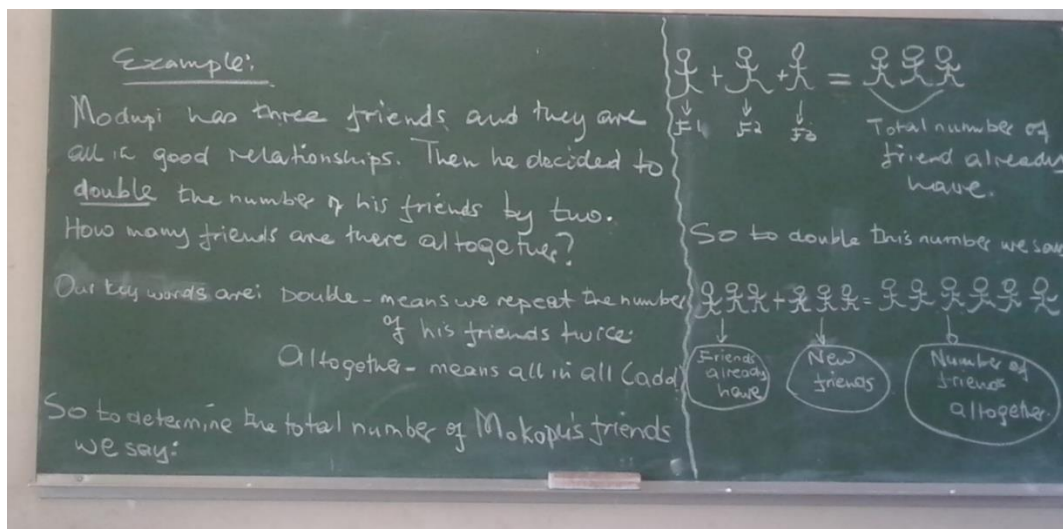 Example:
Modupi has three friends and they are
all in good relationships. Then he decided to
double the number of his friends by two.
How many friends are there altogether?
Our key words are: Double - means we repeat the number
of his friends twice.
Altogether - means all in all (add)
So to determine the total number of Mokopu's friends
we say:
+ + =
F1 F2 F3
Total number of
friend already
have.
So to double this number we say
+ =
Friends
already
have
New
friends
Number of
friends
altogether.